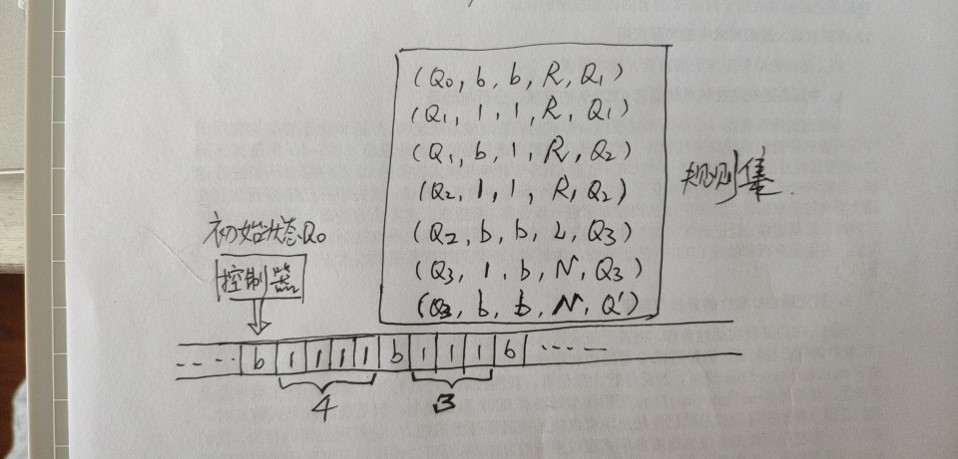 (Q₀, b, b, R, Q₁)
(Q₁, 1, 1, R, Q₁)
(Q₁, b, 1, R, Q₂)
(Q₂, 1, 1, R, Q₂)
(Q₂, b, b, L, Q₃)
(Q₃, 1, b, N, Q₃)
(Q₃, b, b, N, Q')
规则集.
初始状态Q₀
控制器
---- b 1 1 1 1 b 1 1 1 b ······
4 3